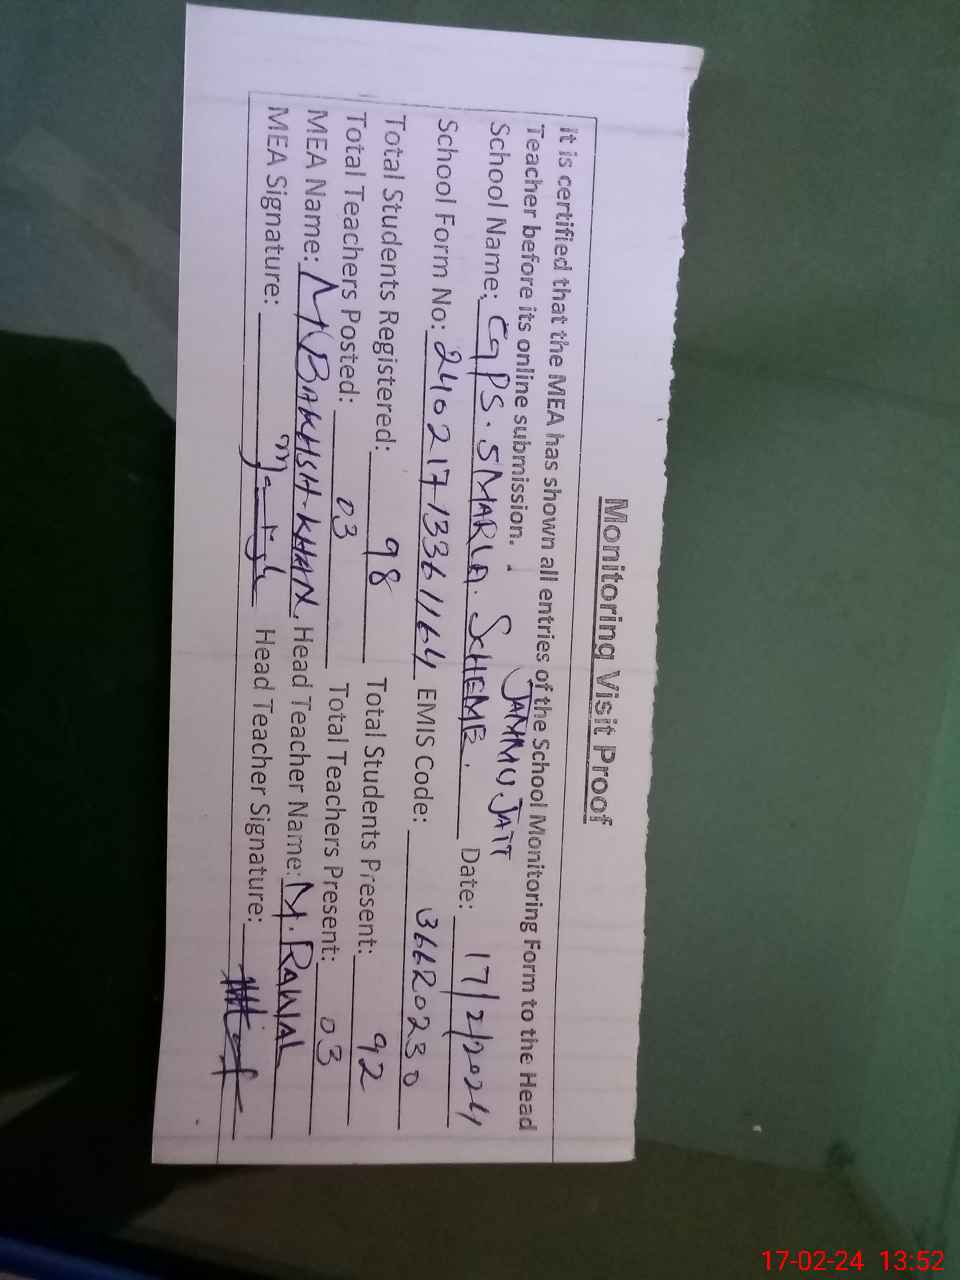 Monitoring Visit Proof
It is certified that the MEA has shown all entries of the School Monitoring Form to the Head
Teacher before its online submission. JAMMU JATT
School Name: GPS. 5 MARLA. SCHEME. Date: 17/2/2024
School Form No: 24021713361164 EMIS Code: 36620230
Total Students Registered: 98 Total Students Present: 92
Total Teachers Posted: 03 Total Teachers Present: 03
MEA Name: M BAKHSH KHAN. Head Teacher Name: M. RAWAL
MEA Signature: Head Teacher Signature:
17-02-24 13:52